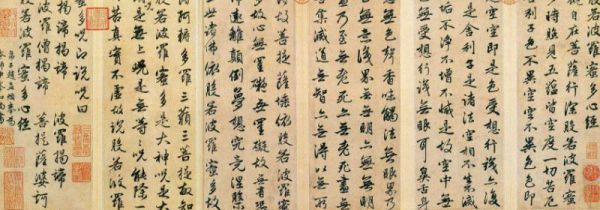 般若波羅蜜多心經
自在菩薩行深般若波羅
多時照見五蘊皆空度一切苦厄
利子色不異空空不異色色即
空空即是色受想行識亦復
是舍利子是諸法空相不生不滅
垢不淨不增不減是故空中
無受想行識無眼耳鼻舌身
無色聲香味觸法無眼界乃
無意識界無無明亦無無明
乃至無老死亦無老死盡無
集滅道無智亦無得以無所
故菩提薩埵依般若波羅
多故心無罣礙無罣礙故無有恐
怖遠離顛倒夢想究竟涅槃
世諸佛依般若波羅蜜多
得阿耨多羅三藐三菩提故知
若波羅蜜多是大神咒是大明咒
是無上咒是無等等咒能除一切
苦真實不虛故說般若波羅
蜜多咒即說咒曰
諦揭諦 波羅揭諦
波羅僧揭諦 菩提薩婆訶
般若波羅蜜多心經
弟子趙孟頫奉為
本師中峰和尚書